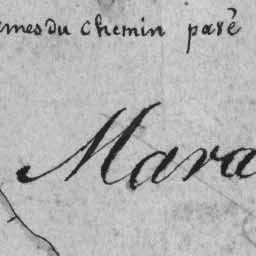 rmes du chemin paré
Mara